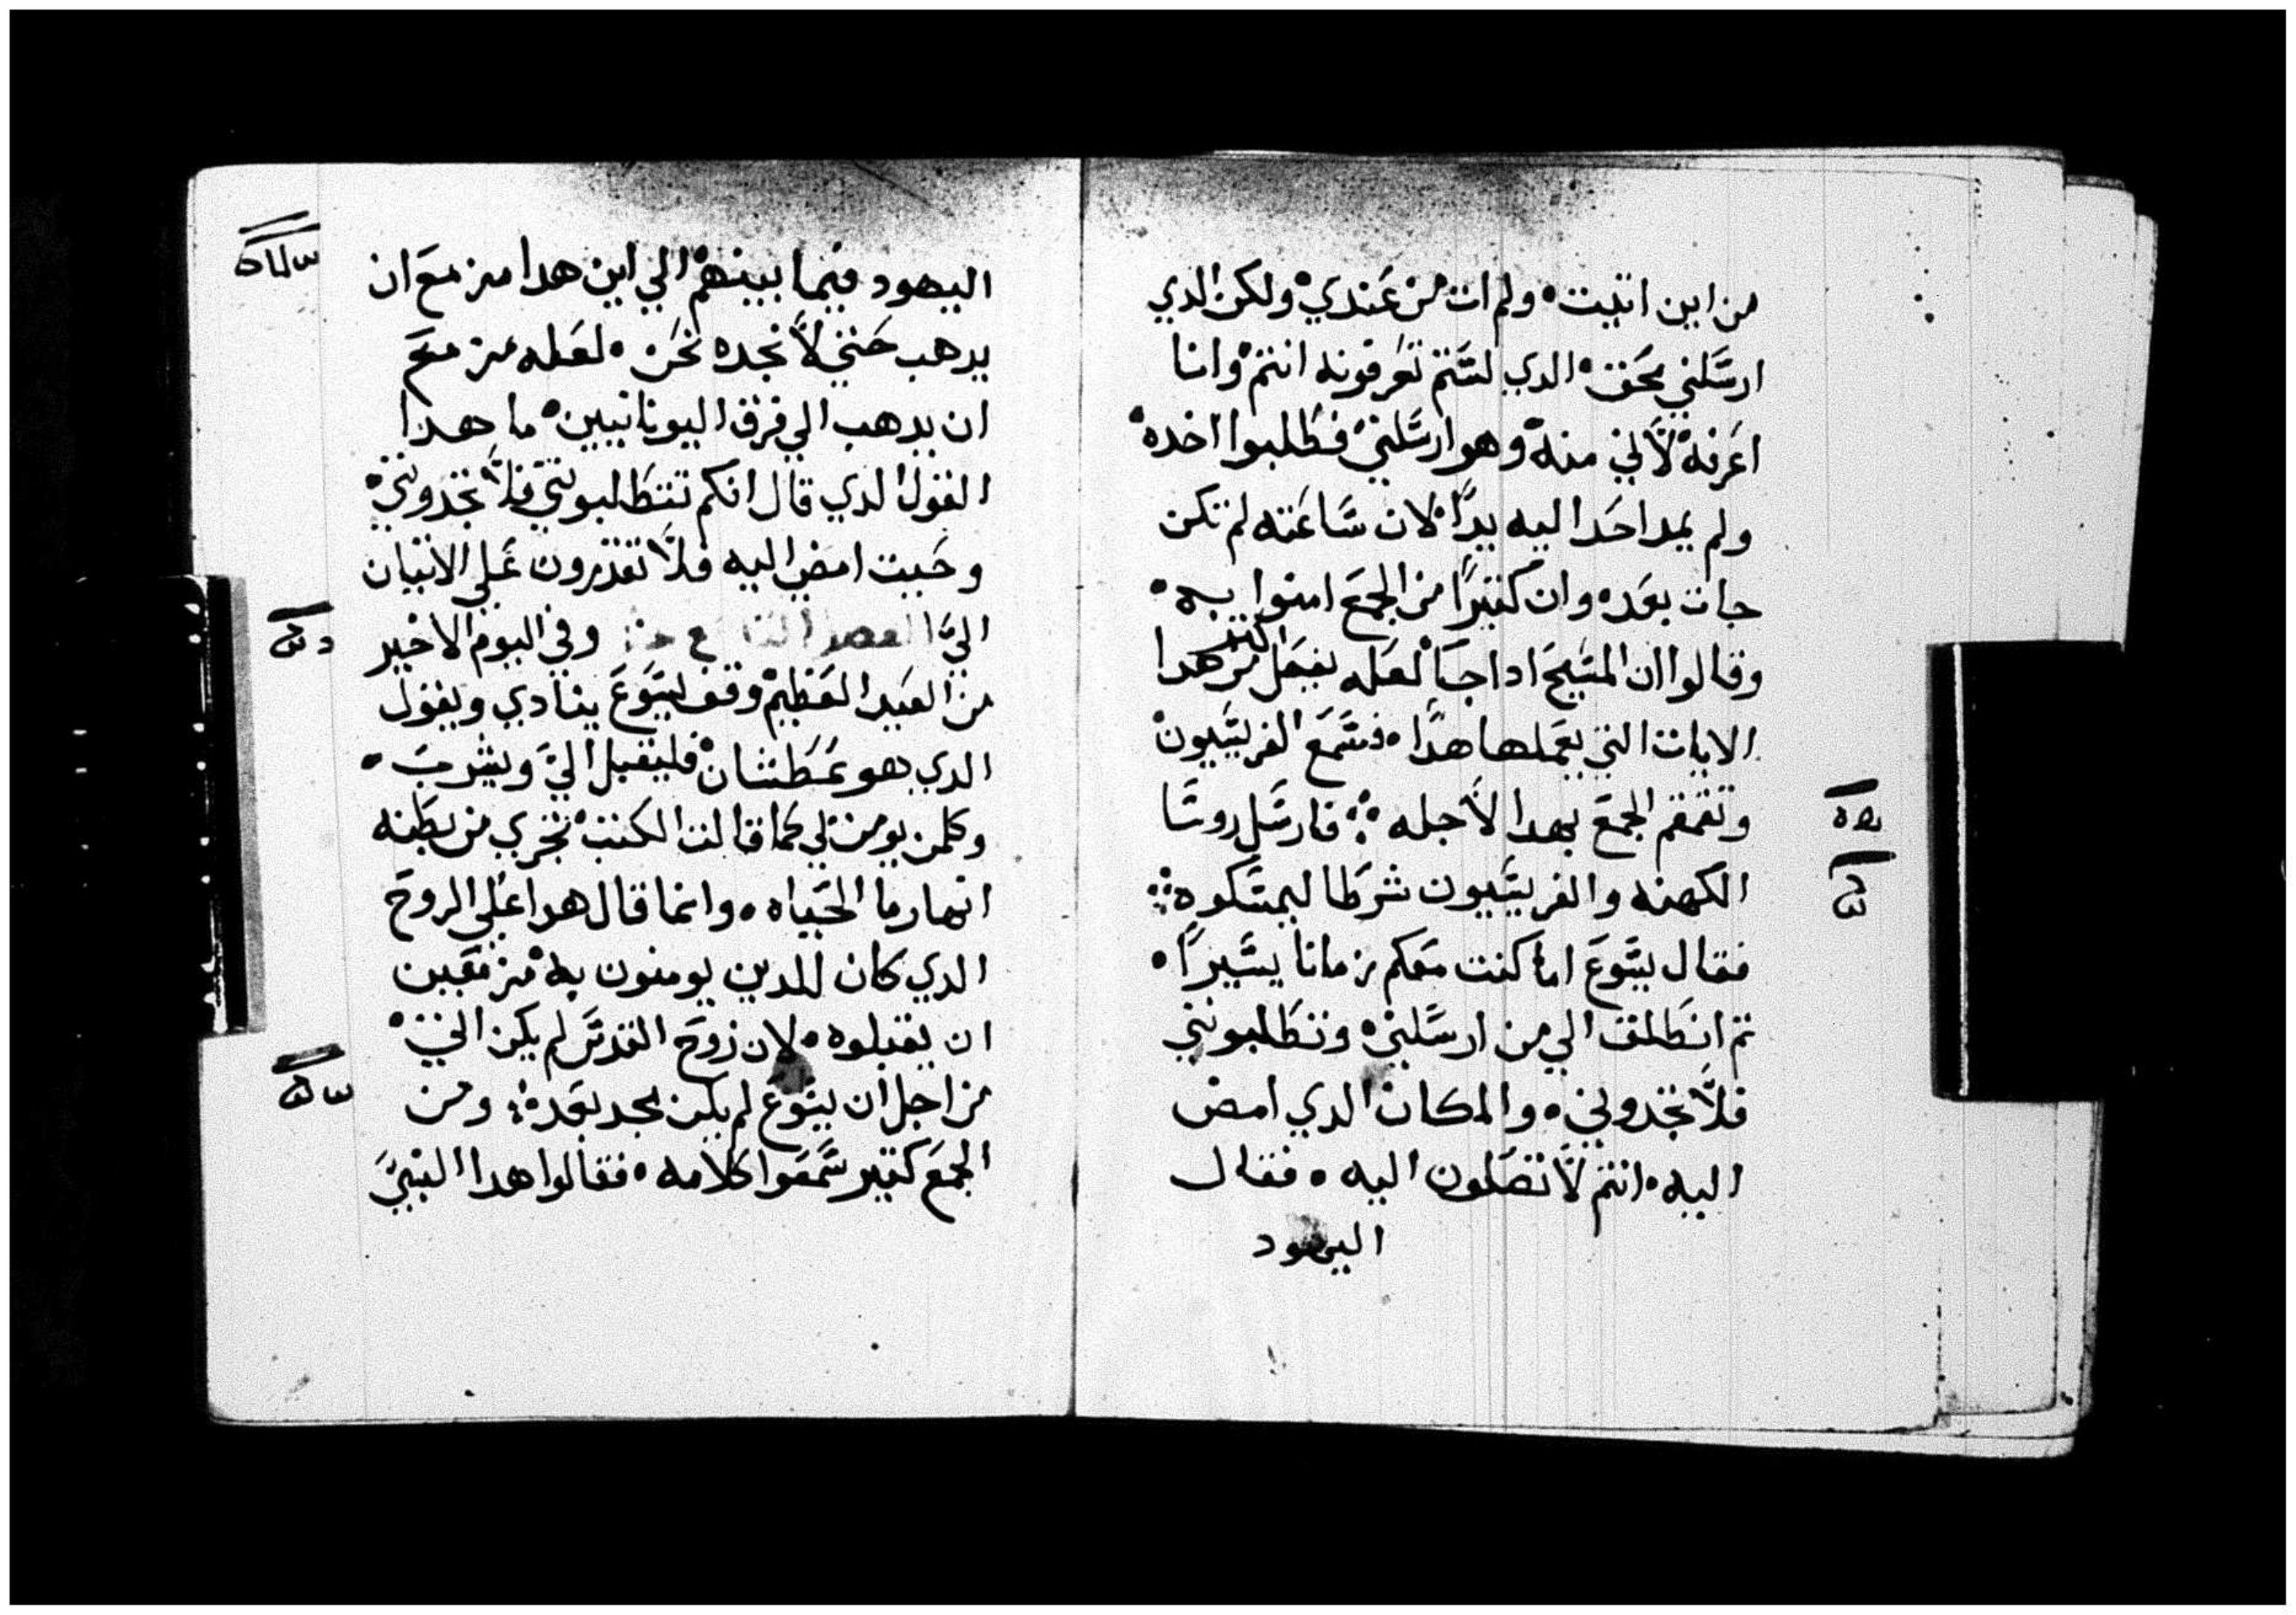 من اين اتيت ولم ات من عندي ولكن الدي
ارسلني محق الدي لستم تعرفونه انتم وانا
اعرفه لاني منه وهو ارسلني فطلبوا اخده
ولم يمد احدا اليه يدا لان ساعته لم تكن
جات بعده وان كثيرا من الجمع امنوا به
وقالوا ان المسيح ادا جا لعله يفعل اكثر من هدا
الايات التي يعملها هدا فسمع الفريسيون
وتقمقم الجمع بهدا لاجله فارسل روسا
الكهنه والفريسيون شرطا ليمسكوه
فقال يسوع اما كنت معكم زمانا يسيرا
تم انطلق الي من ارسلني وتطلبونني
فلا تجدوني والمكان الدي امض
اليه انتم لا تصلون اليه فقال
اليهود
اليهود فيما بينهم الي اين هدا مزمع ان
يدهب حتي لا نجده نحن لعله مزمع
ان يدهب الي فرق اليونانيين ما هدا
القول الدي قال انكم تتطلبونني فلا تجدوني
وحيت امض اليه فلا تقدرون علي الاتيان
الي الفصل وفي اليوم الاخير
من العيد العظيم وقف يسوع ينادي ويقول
الدي هو عطشان فليقبل الي ويشرب
وكلمن يومن بي كما قالت الكتب تجري من بطنه
انهار ما الحياه وانما قال هدا علي الروح
الدي كان للدين يومنون به مزمعين
ان يقبلوه لان روح القدس لم يكن اتي
من اجل ان يسوع لم يكن مجد بعده ومن
الجمع كتير سمعوا كلامه فقالوا هدا النبي